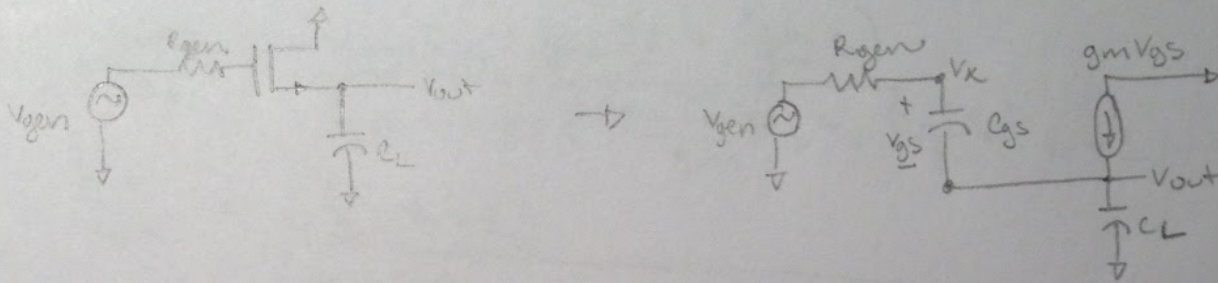 Rgen
Vgen
Vout
CL
Rgen
Vx
gmVgs
Vgen
+
Vgs
-
Cgs
Vout
CL